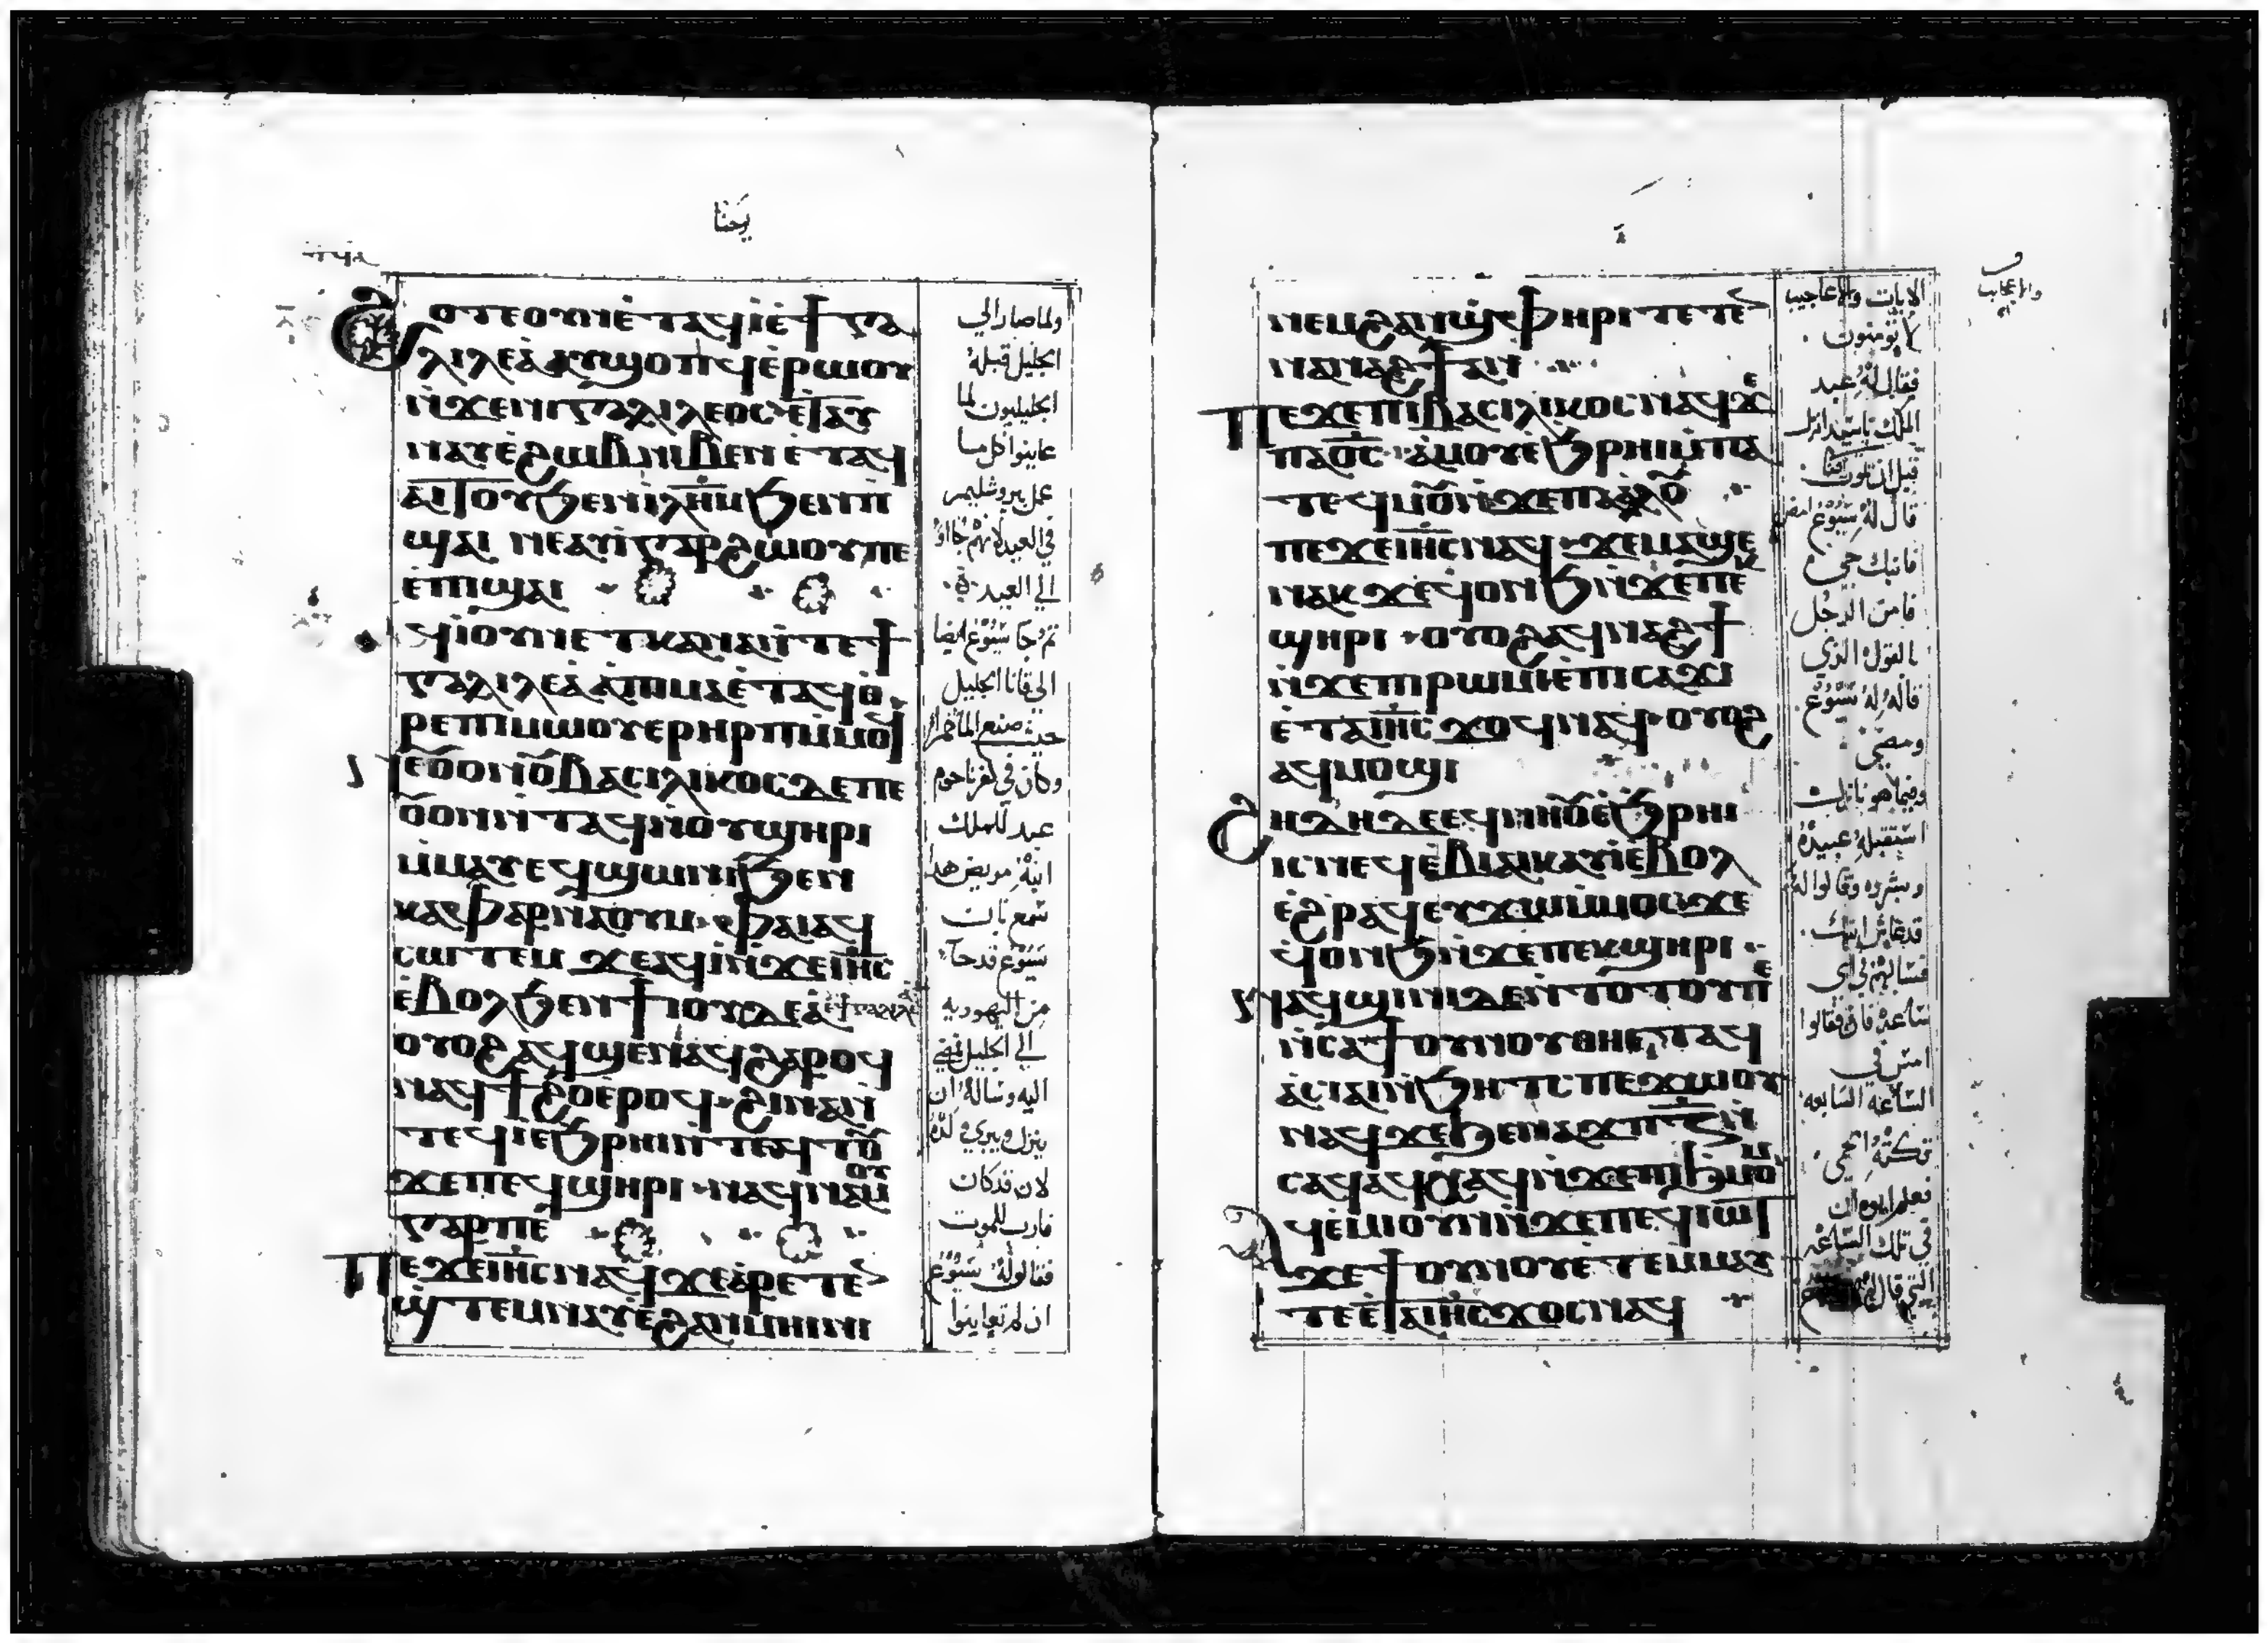 يحنا
ϩⲟⲧⲉ ⲟⲩⲛ ⲉ̀ⲧⲁϥⲓ̀ ⲉ̀ϯⲅⲁ
ⲗⲓⲗⲉⲁ̀ ⲁⲩϣⲟⲡϥ ⲉ̀ⲣⲱⲟⲩ
ⲛ̀ϫⲉⲛⲓⲅⲁⲗⲓⲗⲉⲟⲥ ⲉ̀ⲧⲁⲩ
ⲛⲁⲩ ⲉ̀ϩⲱⲃ ⲛⲓⲃⲉⲛ ⲉ̀ⲧⲁϥ
ⲁⲓⲧⲟⲩ ϧⲉⲛ ⲓⲗ̅ⲏ̅ⲙ̅ ϧⲉⲛ ⲡ
ϣⲁⲓ ⲛⲉⲁⲩⲓ̀ ⲅⲁⲣ ϩⲱⲟⲩ ⲡⲉ
ⲉ̀ⲡϣⲁⲓ
ⲁϥⲓ̀ ⲟⲩⲛ ⲉ̀ⲧⲕⲁⲛⲁ ⲛ̀ⲧⲉϯ
ⲅⲁⲗⲓⲗⲉⲁ̀ ⲡⲓⲙⲁ ⲉ̀ⲧⲁϥⲑ
ⲣⲉ ⲡⲓⲙⲱⲟⲩ ⲉⲣⲏⲣⲡ ⲙ̀ⲙⲟϥ
ⲛⲉⲟⲩⲟⲛ ⲟⲩⲃⲁⲥⲓⲗⲓⲕⲟⲥ ⲇⲉ ⲡⲉ
ⲟⲩⲟⲛⲛ̀ⲧⲁϥ ⲛ̀ⲟⲩϣⲏⲣⲓ
ⲙ̀ⲙⲁⲩ ⲉϥϣⲱⲛⲓ ϧⲉⲛ
ⲕⲁⲫⲁⲣⲛⲁⲟⲩⲙ ⲫⲁⲓ ⲁϥ
ⲥⲱⲧⲉⲙ ϫⲉ ⲁϥⲓ̀ ⲛ̀ϫⲉ ⲓⲏ̅ⲥ̅
ⲉ̀ⲃⲟⲗϧⲉⲛ ϯⲓⲟⲩⲇⲉⲁ̀ ⲉ̀ϯⲅⲁⲗⲓⲗⲉⲁ̀
ⲟⲩⲟϩ ⲁϥϣⲉⲛⲁϥ ϩⲁⲣⲟϥ
ⲛⲁϥϯϩⲟ ⲉ̀ⲣⲟϥ ϩⲓⲛⲁ ⲛ̀
ⲧⲉϥⲓ̀ ⲉ̀ϧⲣⲏⲓ ⲛ̀ⲧⲉϥⲧⲟⲩ
ϫⲉ ⲡⲉϥϣⲏⲣⲓ ⲛⲁϥⲛⲁⲙⲟⲩ
ⲅⲁⲣ ⲡⲉ
ⲡⲉϫⲉ ⲓⲏ̅ⲥ̅ ⲛⲁϥ ϫⲉ ⲁ̀ⲣⲉⲧⲉ
ϣⲧⲉⲙⲛⲁⲩ ⲉ̀ϩⲁⲛⲙⲏⲓⲛⲓ
ولما صار الي
الجليل قبله
الجليليون لما
عاينوا كل ما
عمل بيروشليم
في العيد لانهم جااوا
الي العيد
ثم جا يسوع ايضا
الي قانا الجليل
حيث صنع الما خمرا
وكان في كفرناحوم
عبد للملك
ابنه مريض هدا
سمع بان
يسوع قد جا
من اليهوديه
الي الجليل فمضي
اليه وساله ان
ينزل ويبري ولده
لان قد كان
قارب للموت
فقال له يسوع
ان لم تعاينوا
ⲛⲉⲙ ϩⲁⲛϣⲫⲏⲣⲓ ⲧⲉⲧⲉ
ⲛⲁⲛⲁϩϯ ⲁⲛ
ⲡⲉϫⲉ ⲡⲓⲃⲁⲥⲓⲗⲓⲕⲟⲥ ⲛⲁϥ ϫⲉ
ⲡⲁⲟ̅ⲥ̅ ⲁ̀ⲙⲟⲩ ⲉ̀ϧⲣⲏⲓ ⲙ̀ⲡⲁ
ⲧⲉϥⲙⲟⲩ ⲛ̀ϫⲉ ⲡⲁⲁⲗⲟⲩ
ⲡⲉϫⲉ ⲓⲏ̅ⲥ̅ ⲛⲁϥ ϫⲉ ⲙⲁϣⲉ
ⲛⲁⲕ ϫⲉ ϥⲟⲛϧ ⲛ̀ϫⲉ ⲡⲉⲕ
ϣⲏⲣⲓ ⲟⲩⲟϩ ⲁϥⲛⲁϩϯ
ⲛ̀ϫⲉ ⲡⲓⲣⲱⲙⲓ ⲉ̀ⲡⲓⲥⲁϫⲓ
ⲉ̀ⲧⲁ ⲓⲏ̅ⲥ̅ ϫⲟϥ ⲛⲁϥ ⲟⲩⲟϩ
ⲁϥⲙⲟϣⲓ
ϩⲏⲇⲏ ⲇⲉ ⲉϥⲛⲏⲟⲩ ⲉ̀ϧⲣⲏⲓ
ⲓⲥ ⲛⲉϥⲉ̀ⲃⲓⲁⲓⲕ ⲁⲩⲓ̀ ⲉ̀ⲃⲟⲗ
ⲉ̀ϩⲣⲁϥ ⲉⲩϫⲱ ⲙ̀ⲙⲟⲥ ϫⲉ
ϥⲟⲛϧ ⲛ̀ϫⲉ ⲡⲉⲕϣⲏⲣⲓ
ⲛⲁϥϣⲓⲛⲓ ⲇⲉ ⲛ̀ⲧⲟⲧⲟⲩ ⲡⲉ
ⲛ̀ⲥⲁϯⲟⲩⲛⲟⲩ ⲑⲏ ⲉ̀ⲧⲁϥ
ⲁ̀ⲥⲓⲁⲓ ⲛ̀ϧⲏⲧⲥ ⲡⲉϫⲱⲟⲩ
ⲛⲁϥ ϫⲉ ⲛ̀ⲥⲁϥ
ⲥⲁϥ ⲁϥⲭⲁϥ ⲛ̀ϫⲉ ⲡⲓϧⲙⲟⲙ
ⲁϥⲉ̀ⲙⲓ ⲟⲩⲛ ⲛ̀ϫⲉ ⲡⲉϥⲓⲱⲧ
ϫⲉ ϯⲟⲩⲛⲟⲩ ⲉ̀ⲧⲉⲙⲙⲁⲩ
ⲧⲉ ⲉ̀ⲧⲁ ⲓⲏ̅ⲥ̅ ϫⲟⲥ ⲛⲁϥ
الايات والاعاجيب
لا تومنون
فقال له عبد
الملك يا سيد انزل
قبل ان يموت فتاي
قال له يسوع امض
فابنك حي
فامن الرجل
بالقول الذي
قاله له يسوع
ومضي
وفيما هو نازل
استقبله عبيده
وبشروه وقالوا له
قد عاش ابنك
فسالهم في اي
ساعه فاق فقالوا
امس في
الساعه السابعه
تركته الحمي
فعلم ابوه ان
في تلك الساعه
التي قال له
والاعجايب